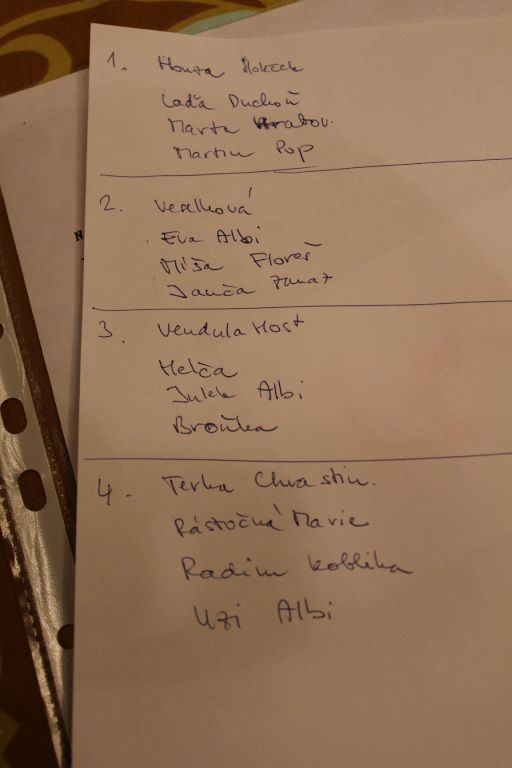 1. Honza Mokeck
Laďa Duchoň
Marta Hrabov.
Martin Pop
2. Veselková
Eva Albi
Míša Floreš
Janča
3. Vendula Host
Helča
Julek Albi
Broňka
4. Terka Chrastin.
Rástočná Marie
Radim Koblika
Uzi Albi